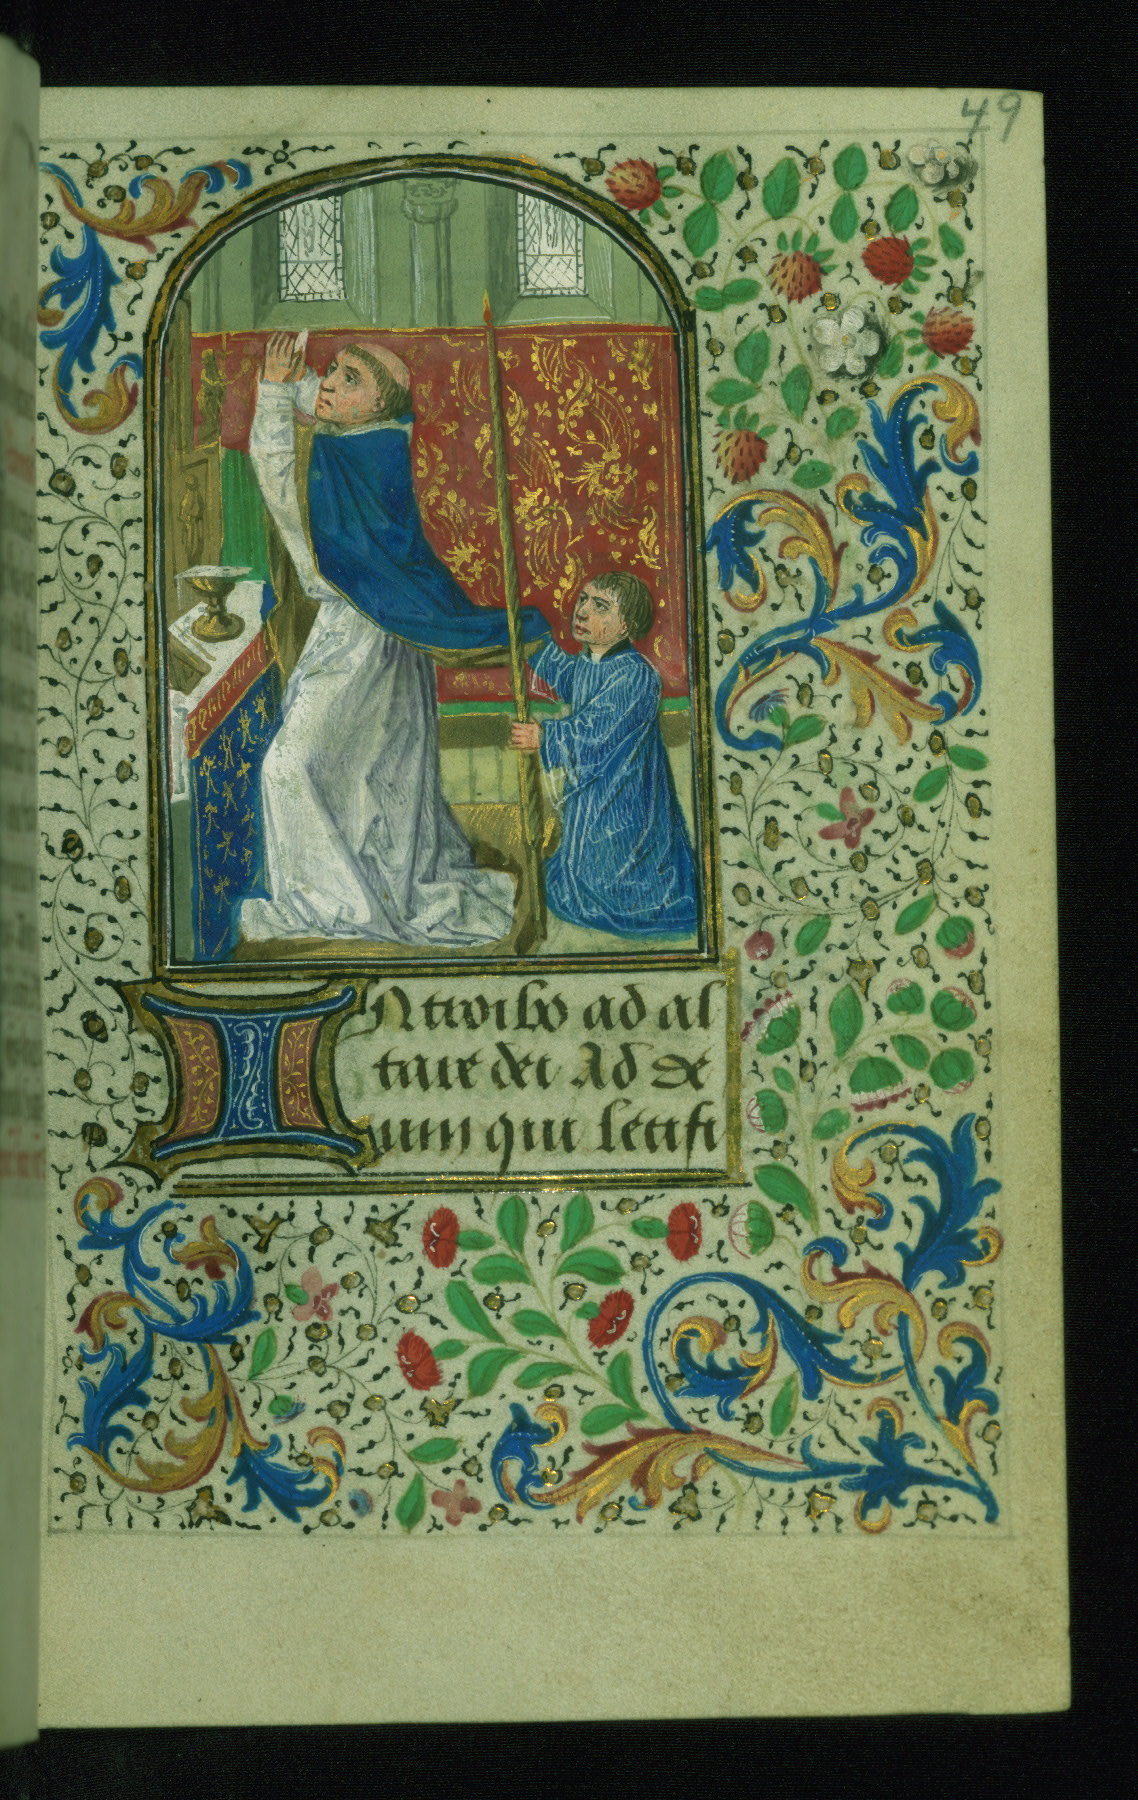 49
Introibo ad al
tare dei Ad de
um qui letifi